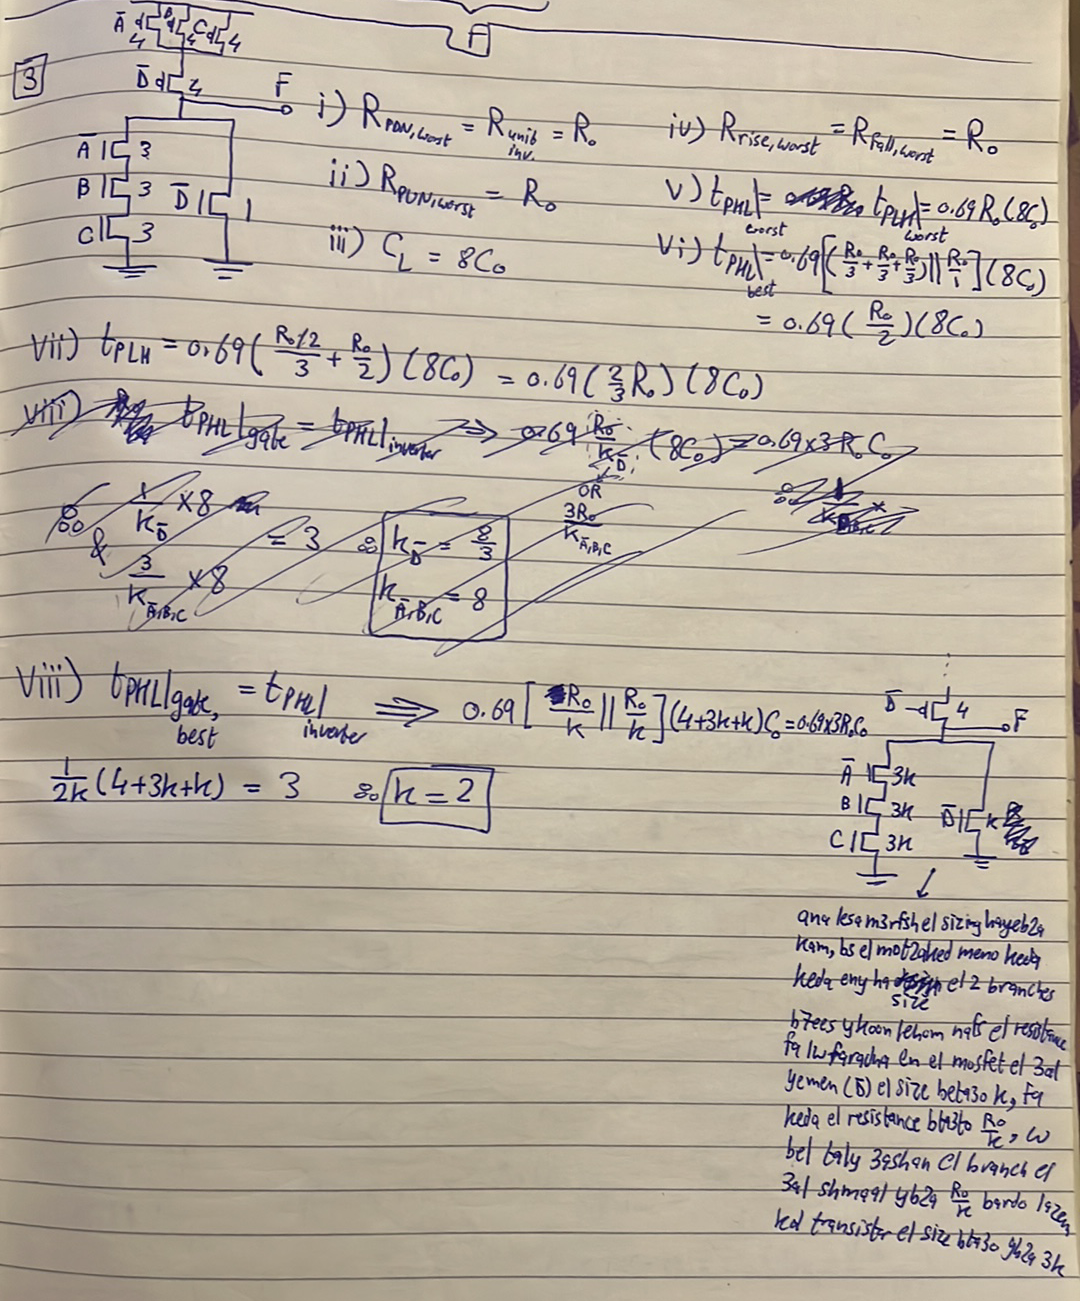 Ā B C
4 4 4
3
D̄ 4 F
Ā 3
B 3 D̄ 1
C 3
i) R_PDN,worst = R_unit inv. = R₀
ii) R_PUN,worst = R₀
iii) C_L = 8C₀
iv) R_rise,worst = R_fall,worst = R₀
v) t_PHL|worst = t_PLH|worst = 0.69 R₀ (8C₀)
vi) t_PHL|best = 0.69[(R₀/3 + R₀/3 + R₀/3) || R₀/1] (8C₀)
= 0.69 (R₀/2) (8C₀)
vii) t_PLH = 0.69 ( (R₀/2)/3 + R₀/2 ) (8C₀) = 0.69 (2/3 R₀) (8C₀)
viii) t_PHL|gate = t_PHL|inverter ⇒ 0.69 R₀/k_D̄ (8C₀) = 0.69x3R₀C₀
OR
3R₀/k_Ā,B,C
∴ 1/k_D̄ x8
& = 3
3/k_Ā,B,C x8
∴ k_D̄ = 8/3
k_Ā,B,C = 8
viii) t_PHL|gate, best = t_PHL|inverter ⇒ 0.69 [R₀/k || R₀/k] (4+3k+k)C₀ = 0.69x3R₀C₀
1/2k (4+3k+k) = 3 ∴ k = 2
D̄ 4 F
Ā 3k
B 3k D̄ k
C 3k
ana lesa m3rfsh el sizing hayeb2a
kam, bs el mot2aked meno keda
keda eny ha size el 2 branches
b7ees ykoon lehom nafs el resistance
fa lw faradna en el mosfet el 3al
yemen (D̄) el size beta3o k, fa
keda el resistance bta3to R₀/k, w
bel taly 3ashan el branch el
3al shmaal yb2a R₀/k bardo lazem
kol transistor el size bta3o yb2a 3k